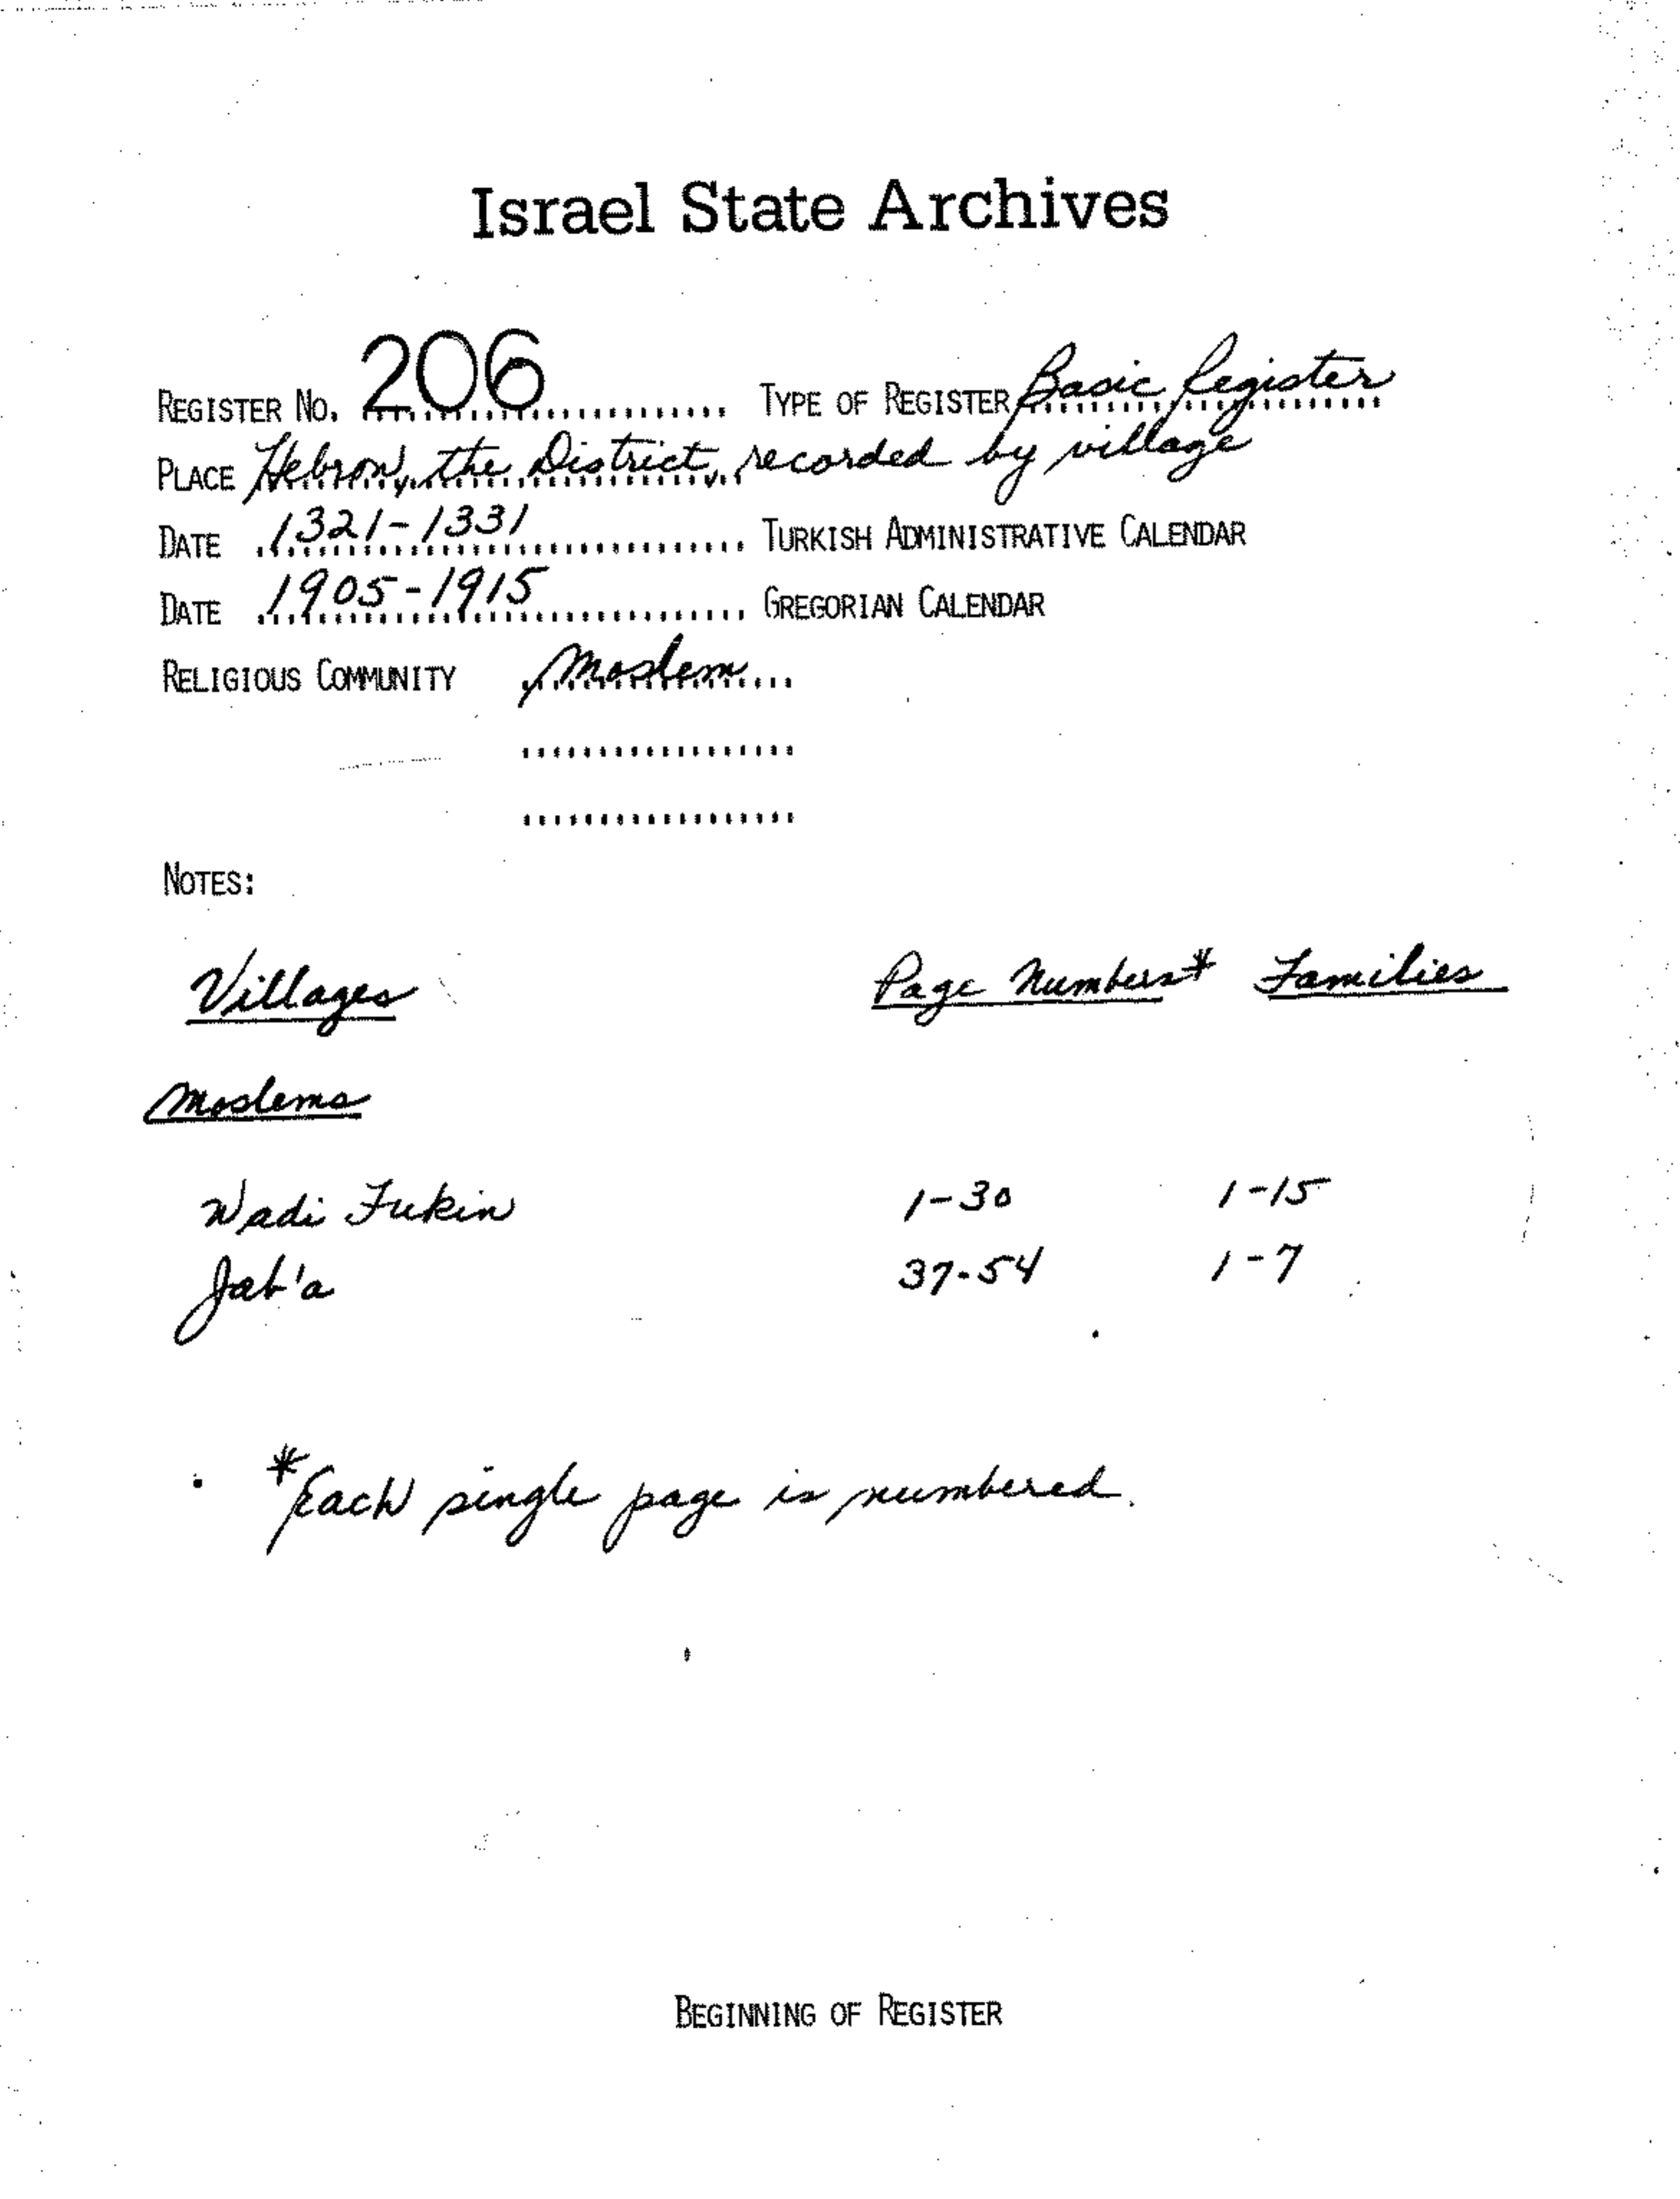 Israel State Archives
REGISTER NO. 206 TYPE OF REGISTER Basic Register
PLACE Hebron, the District, recorded by village
DATE 1321-1331 TURKISH ADMINISTRATIVE CALENDAR
DATE 1905-1915 GREGORIAN CALENDAR
RELIGIOUS COMMUNITY Moslem
NOTES:
Villages Page Numbers* Families
Moslems
Wadi Fukin 1-30 1-15
Jab'a 37-54 1-7
*Each single page is numbered.
BEGINNING OF REGISTER